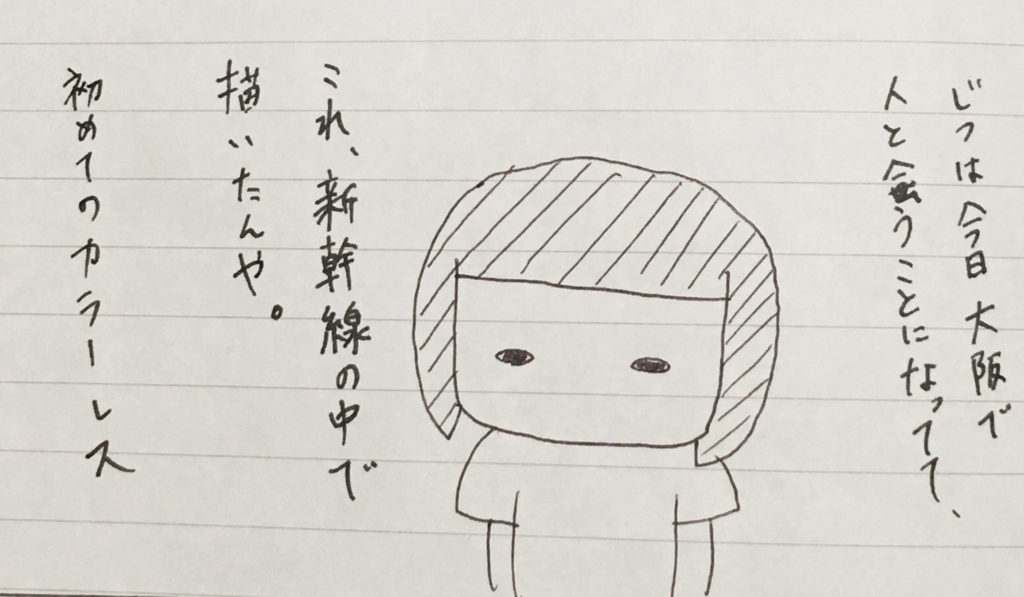 じつは今日大阪で
人と会うことになってて、
これ、新幹線の中で
描いたんや。
初めてのカラーレス